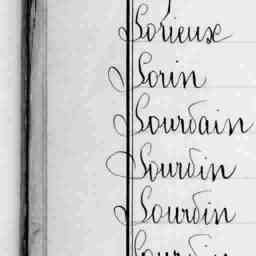 Sorieux
Sorin
Sourdain
Sourdin
Sourdin